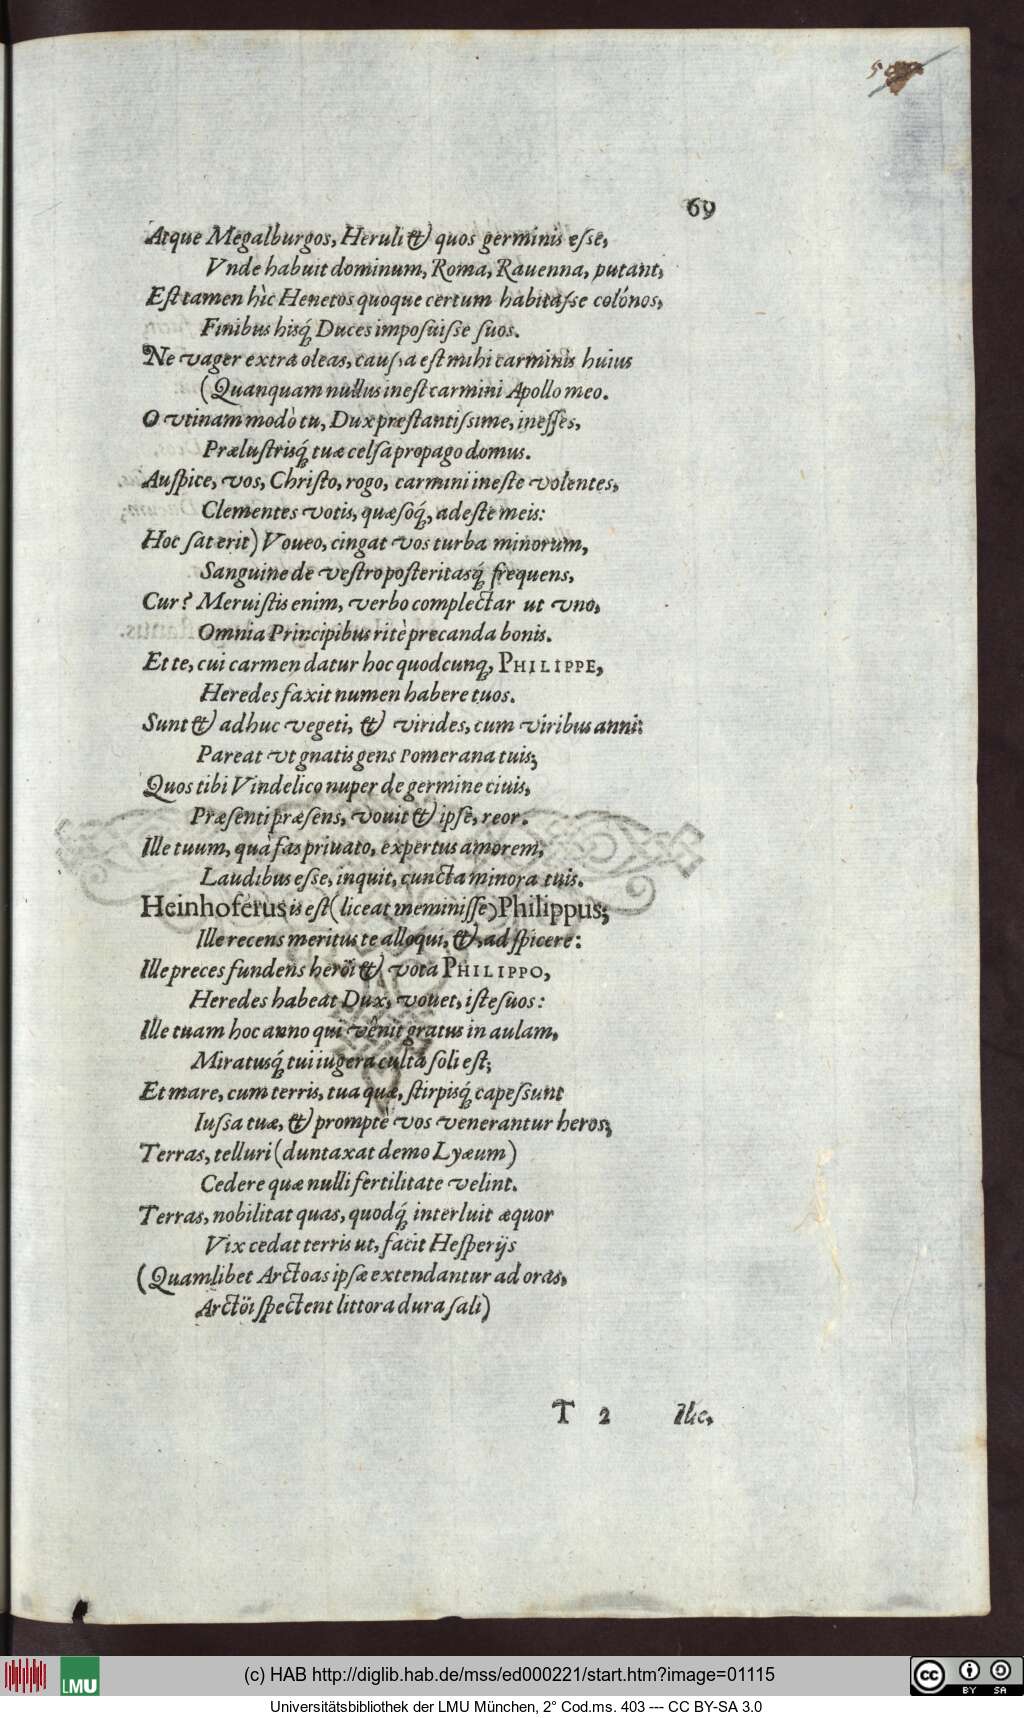 69
Atque Megalburgos, Heruli & quos germinis esse,
Vnde habuit dominum, Roma, Rauenna, putant,
Est tamen hìc Henetos quoque certum habitasse colónos,
Finibus hisq́; Duces imposuisse suos.
Ne vager extra oleas, causa est mihi carminis huius
(Quanquam nullus inest carmini Apollo meo.
O vtinam modò tu, Dux præstantissime, inesses,
Prælustrisq́; tuæ celsa propago domus.
Auspice, vos, Christo, rogo, carmini ineste volentes,
Clementes votis, quæsoq́;, adeste meis:
Hoc sat erit) Voueo, cingat vos turba minorum,
Sanguine de vestro posteritasq́; frequens,
Cur? Meruistis enim, verbo complectar ut vno,
Omnia Principibus ritè precanda bonis.
Et te, cui carmen datur hoc quodcunq;, PHILIPPE,
Heredes faxit numen habere tuos.
Sunt & adhuc vegeti, & virides, cum viribus anni:
Pareat vt gnatis gens Pomerana tuis;
Quos tibi Vindelico nuper de germine ciuis,
Præsenti præsens, vouit & ipse, reor.
Ille tuum, quà fas priuato, expertus amorem,
Laudibus esse, inquit, cuncta minora tuis.
Heinhoferus is est (liceat meminisse) Philippus;
Ille recens meritus te alloqui, &, ad spicere:
Ille preces fundens heröi & vota PHILIPPO,
Heredes habeat Dux, vouet, iste suos:
Ille tuam hoc anno qui vênit gratus in aulam,
Miratusq́; tui iugera culta soli est;
Et mare, cum terris, tua quæ, stirpisq́; capessunt
Iussa tuæ, & promptè vos venerantur heros;
Terras, telluri (duntaxat demo Lyæum)
Cedere quæ nulli fertilitate velint.
Terras, nobilitat quas, quodq́; interluit æquor
Vix cedat terris ut, facit Hesperijs
(Quamlibet Arctoas ipsæ extendantur ad oras,
Arctöi spectent littora dura sali)
T 2 Ilic,
(c) HAB http://diglib.hab.de/mss/ed000221/start.htm?image=01115
LMU
BY SA
Universitätsbibliothek der LMU München, 2° Cod.ms. 403 --- CC BY-SA 3.0